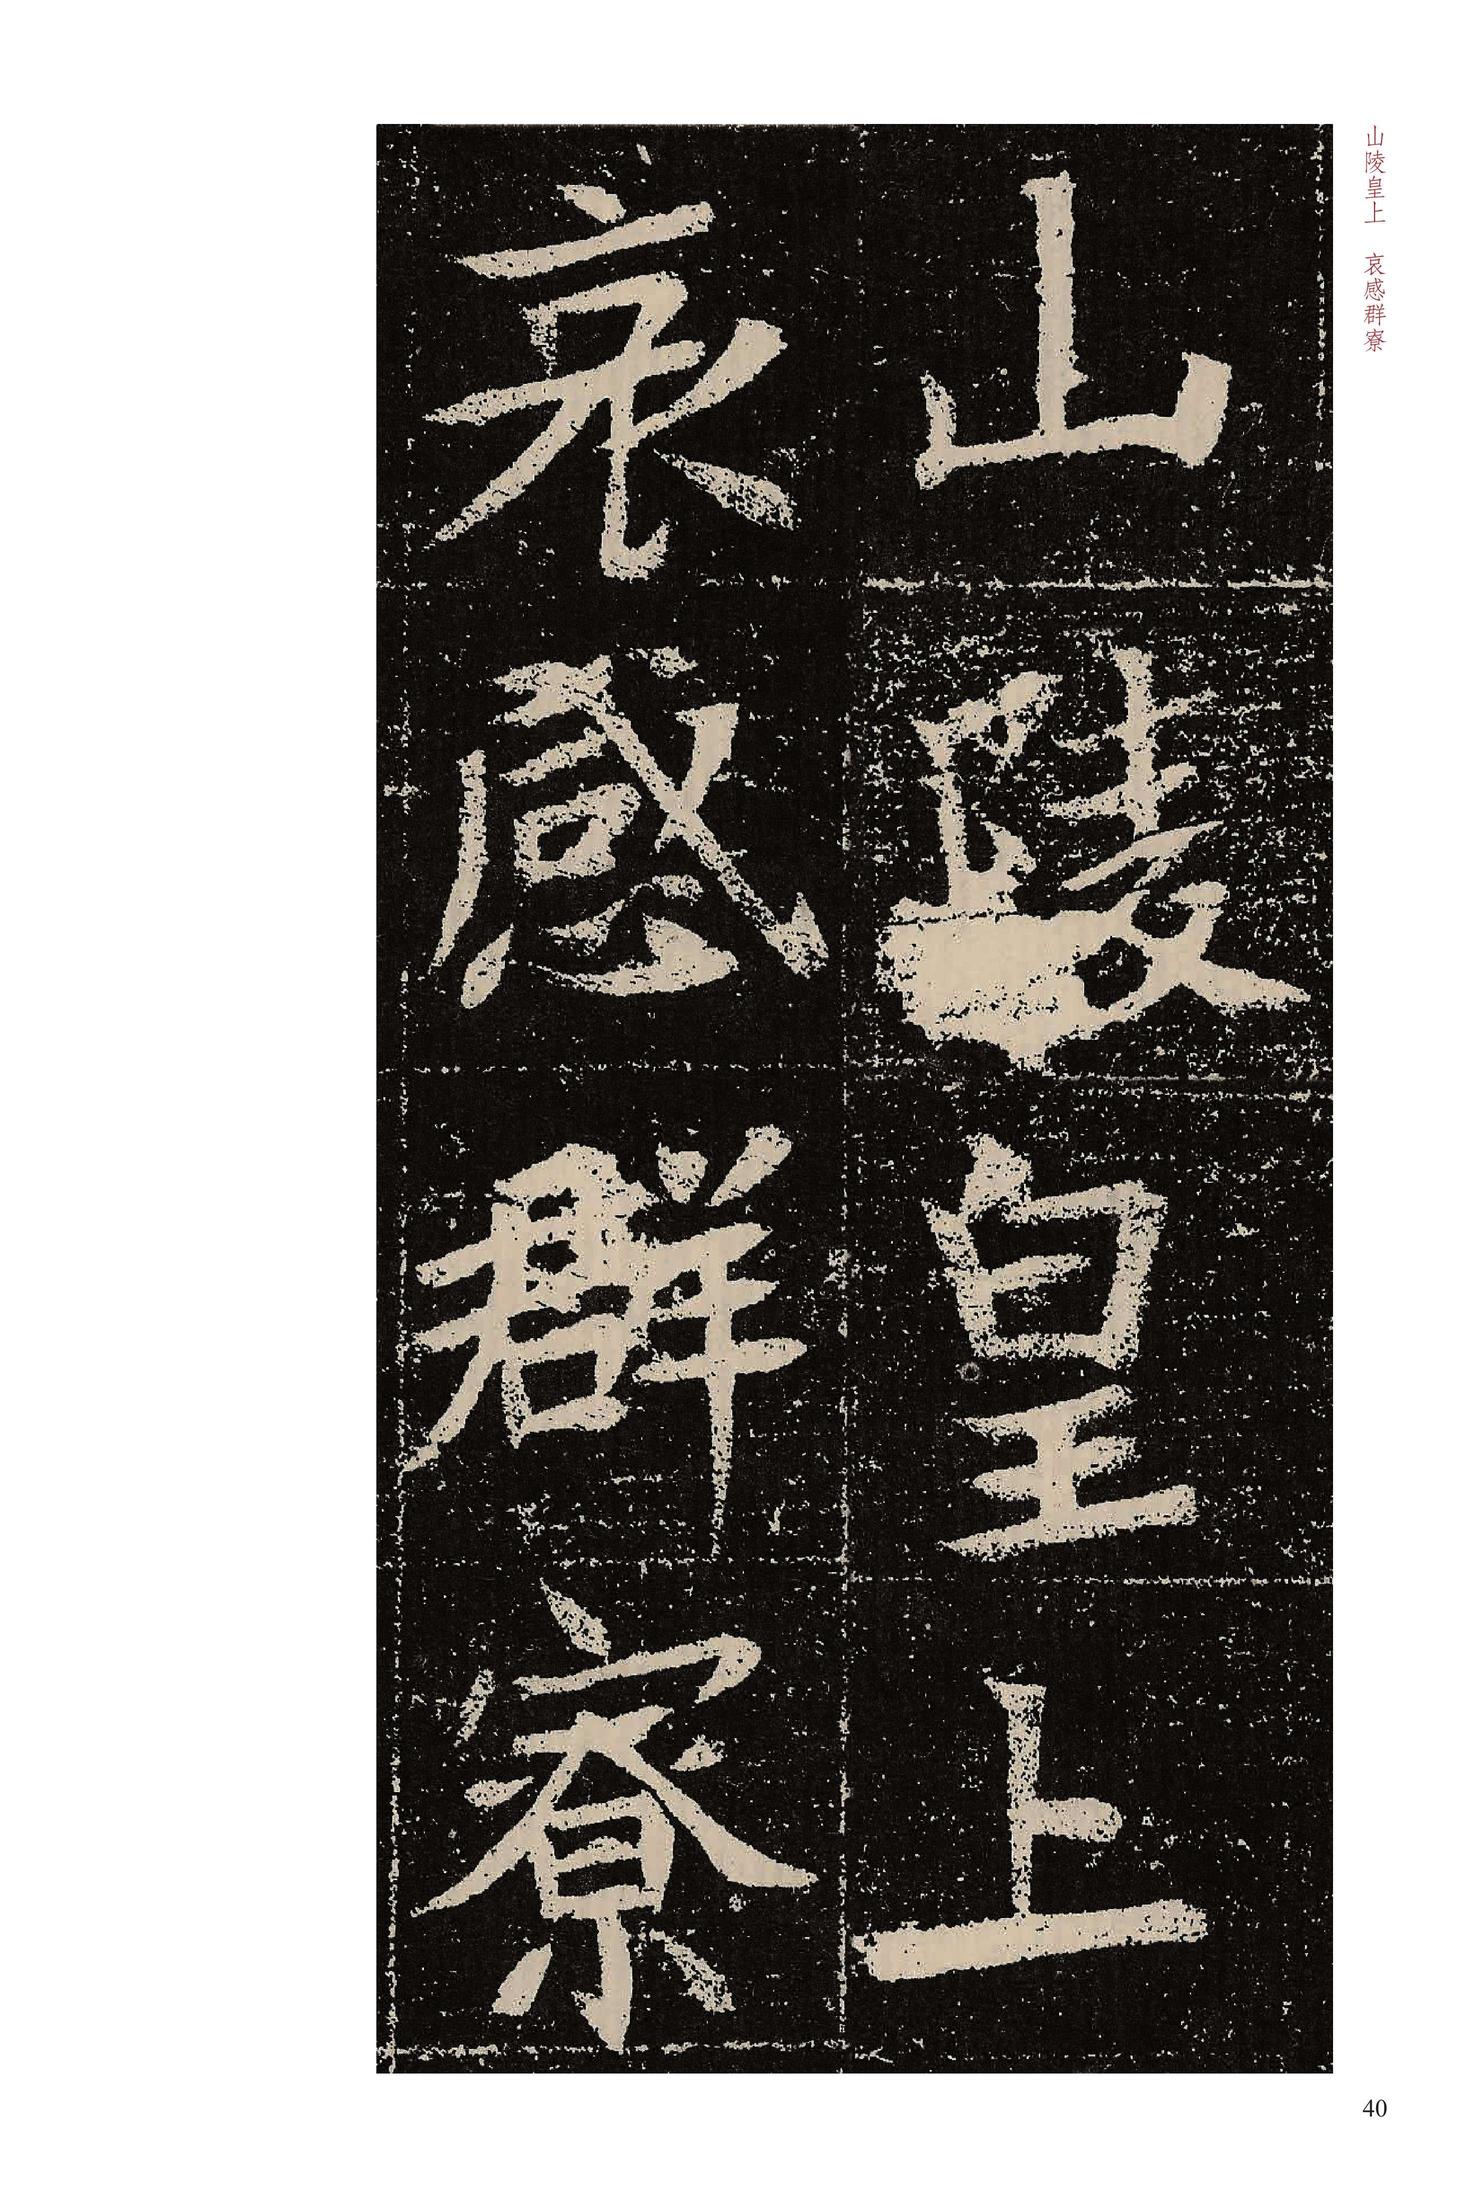 山陵皇上 哀感群寮
山陵皇上
哀感群寮
40